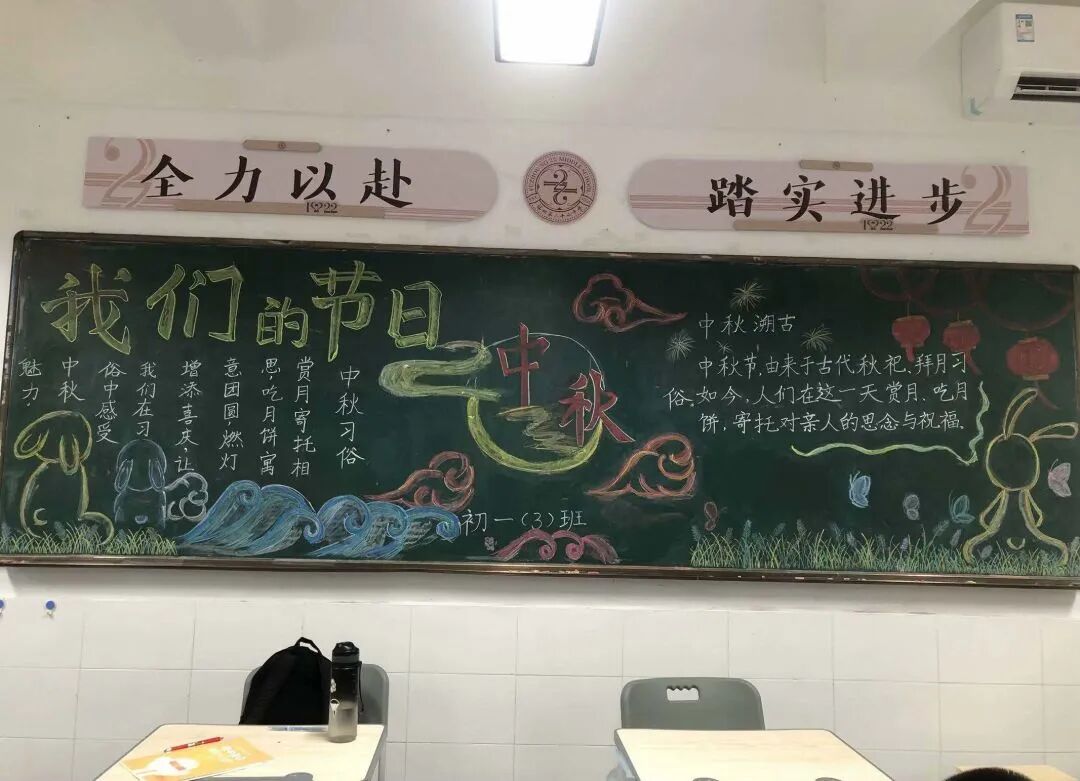 全力以赴
1922
踏实进步
1922
我们的节日
中秋
中秋习俗
赏月寄托相
思吃月饼寓
意团圆,燃灯
增添喜庆,让
我们在习
俗中感受
中秋
魅力.
初一(3)班
中秋溯古
中秋节,由来于古代秋祀、拜月习
俗。如今,人们在这一天赏月、吃月
饼,寄托对亲人的思念与祝福.